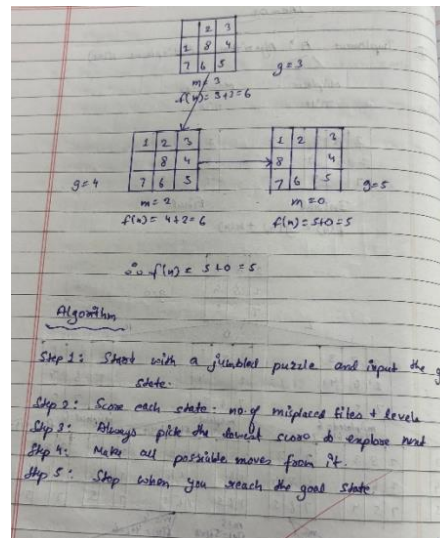 2 3
1 8 4
7 6 5
g=3
m=3
f(n)=3+3=6
1 2 3
8 4
7 6 5
g=4
m=2
f(n)= 4+2=6
1 2 3
8 4
7 6 5
g=5
m=0
f(n)=5+0=5
∴ f(n) = 5+0=5
Algorithm
Step 1: Start with a jumbled puzzle and input the g
state.
Step 2: Score each state: no. of misplaced tiles + levels
Step 3: Always pick the lowest score to explore next
Step 4: Make all possible moves from it.
Step 5: Stop when you reach the goal state.